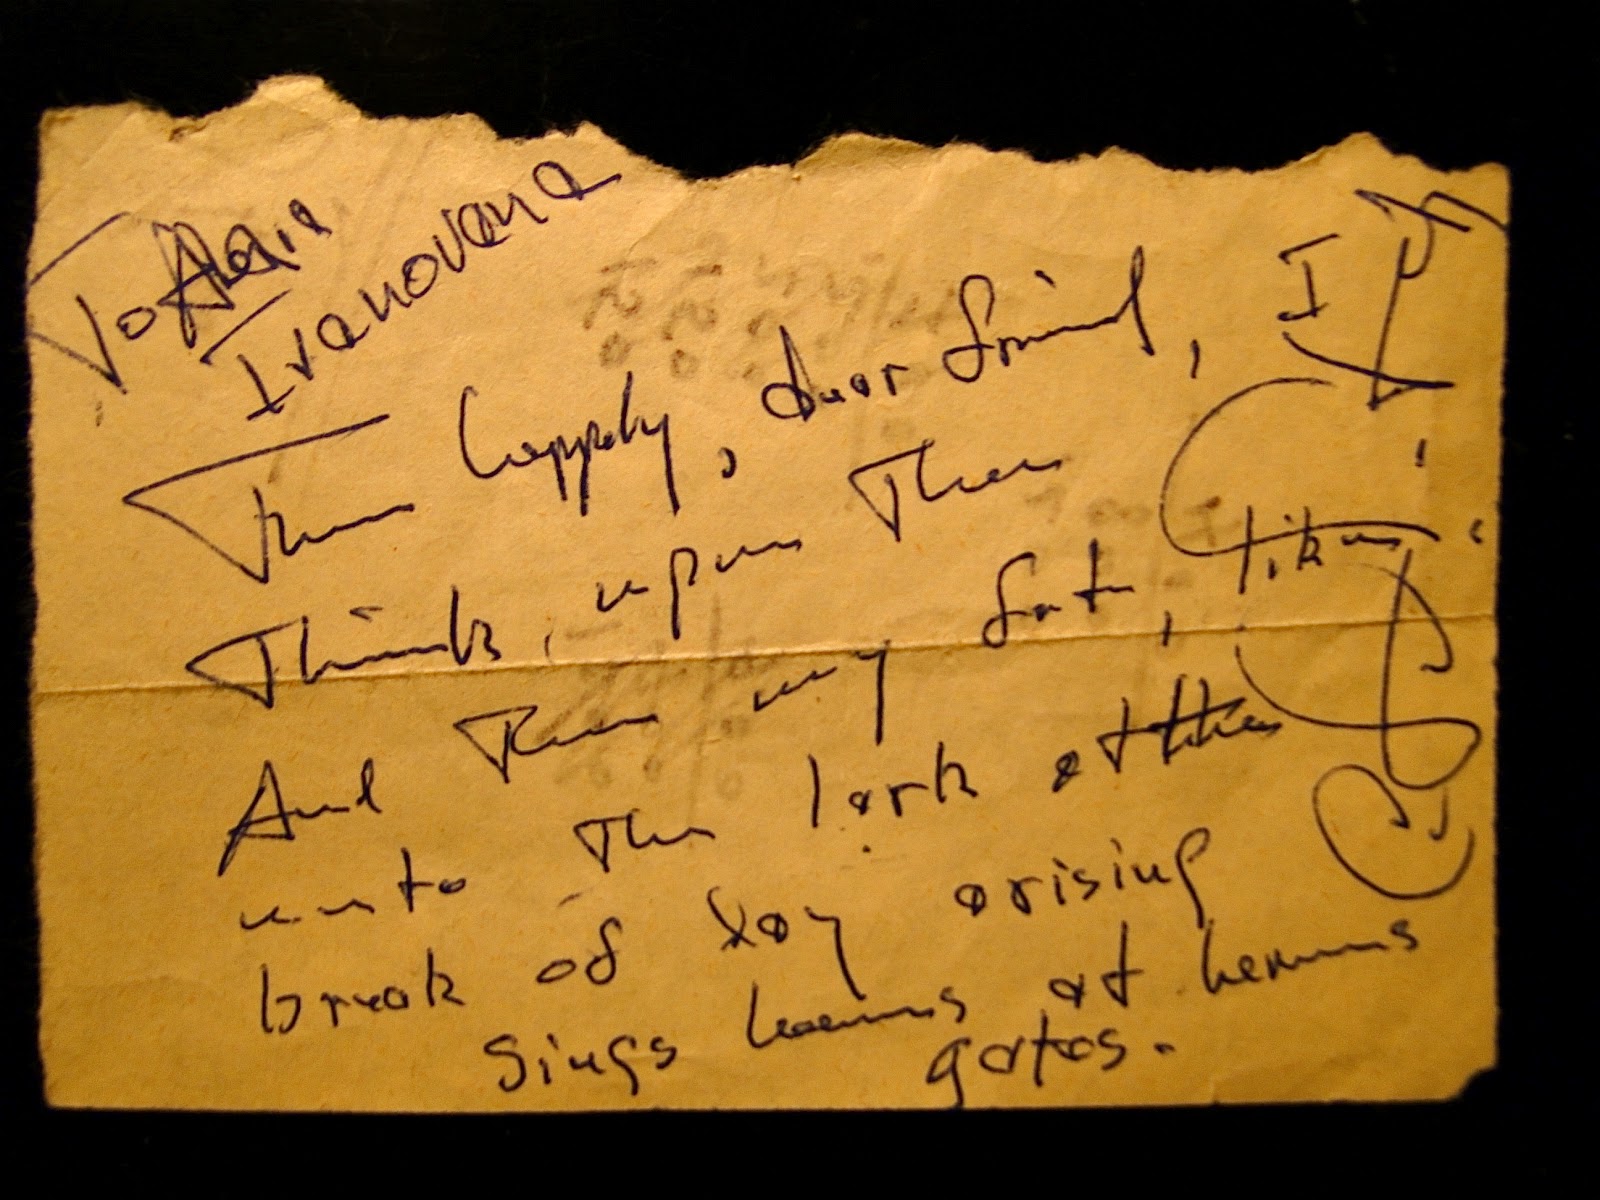 To
Ivanovana
Then happly, dear friend, I
Think, upon Thee
And Then my fate, like
unto The lark at the
break of day arising
Sings at
gates.